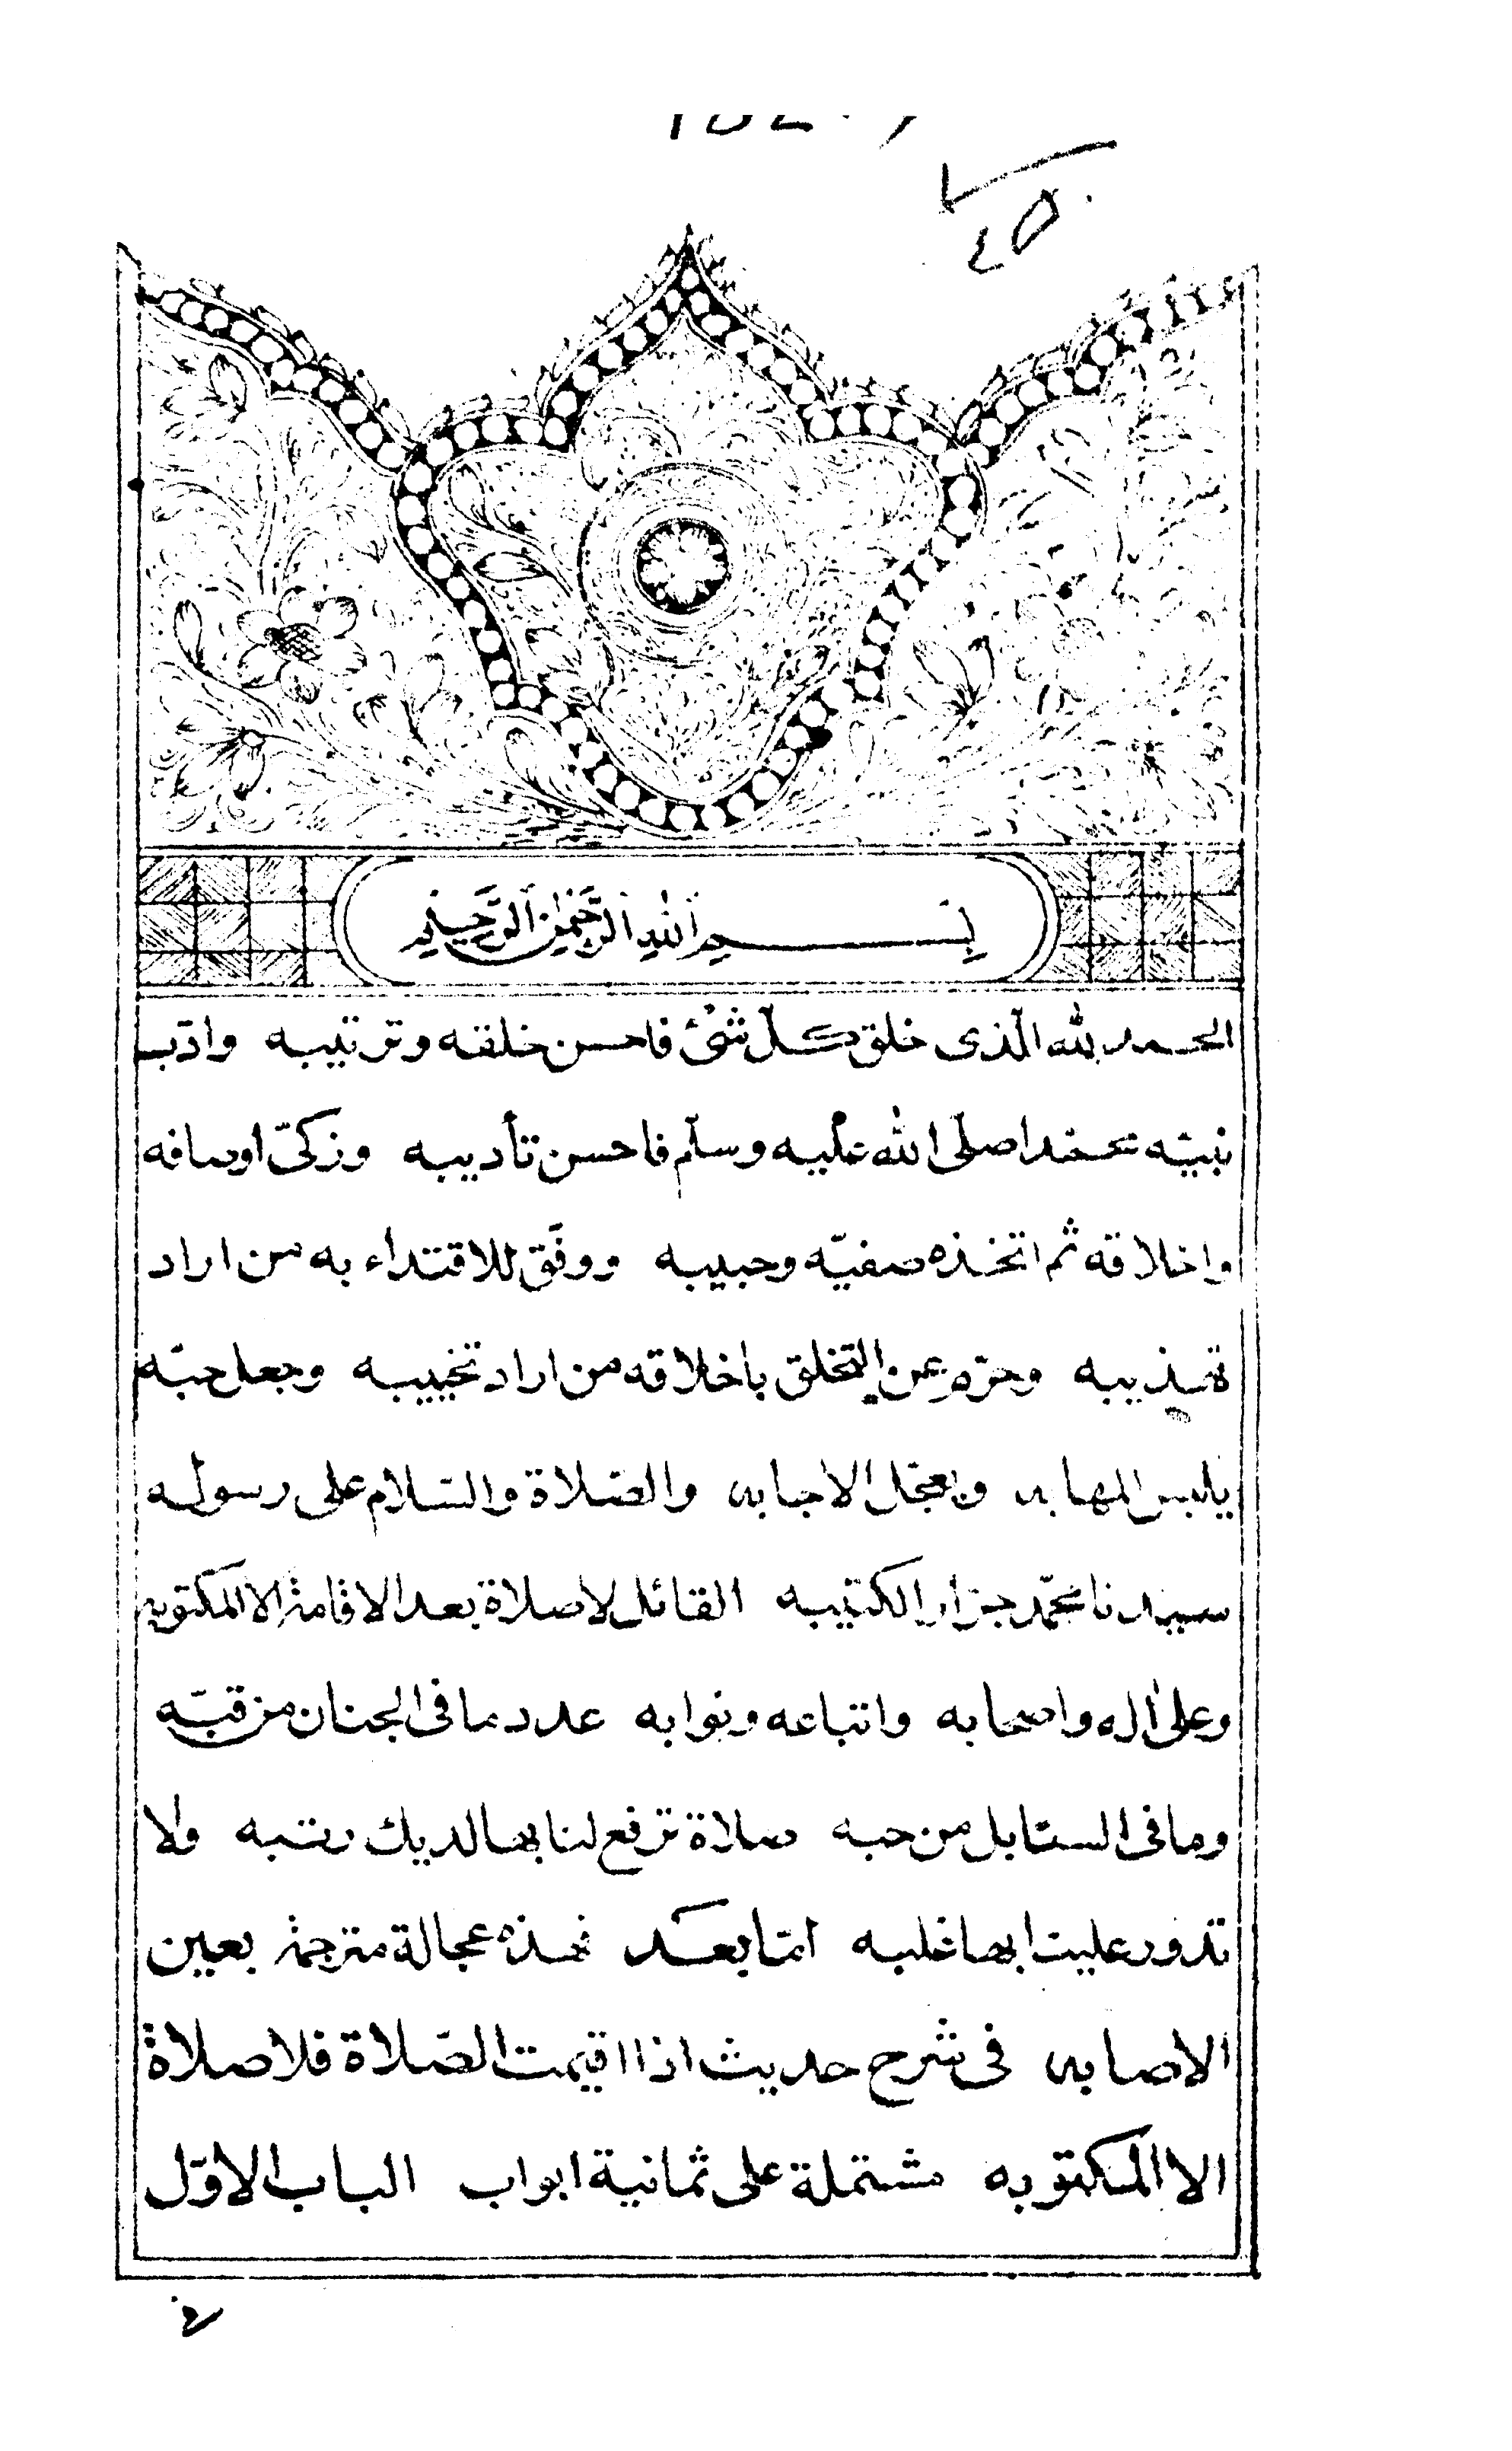 بسم الله الرحمن الرحيم
الحمد لله الّذى خلق كلّ شئ فاحسن خلقه وترتيبه وادّب
نبيّه محمّدا صلّى الله عليه وسلّم فاحسن تأديبه وزكىّ اوصافه
واخلاقه ثم اتخذه صفيّه وحبيبه ووفّق للاقتداء به من اراد
تهذيبه وحرّم عن التخلق باخلاقه من اراد تخييبه وجعل حبّه
يلبس المهابه ويعجّل الاجابه والصّلاة والسّلام على رسوله
سيدنا محمّد جرّار الكتيبه القائل لا صلاة بعد الاقامة الا المكتوبه
وعلى اله واصحابه واتباعه ونوابه عدد ما فى الجنان من قبّه
وما فى السنابل من حبه صلاة ترفع لنا بها لديك رتبه ولا
تدور علينا بها غلبه امّا بعد فهذه عجالة مترجمة بعين
الاصابه فى شرح حديث اذا اقيمت الصّلاة فلا صلاة
الا المكتوبه مشتملة على ثمانية ابواب الباب الاوّل
فى